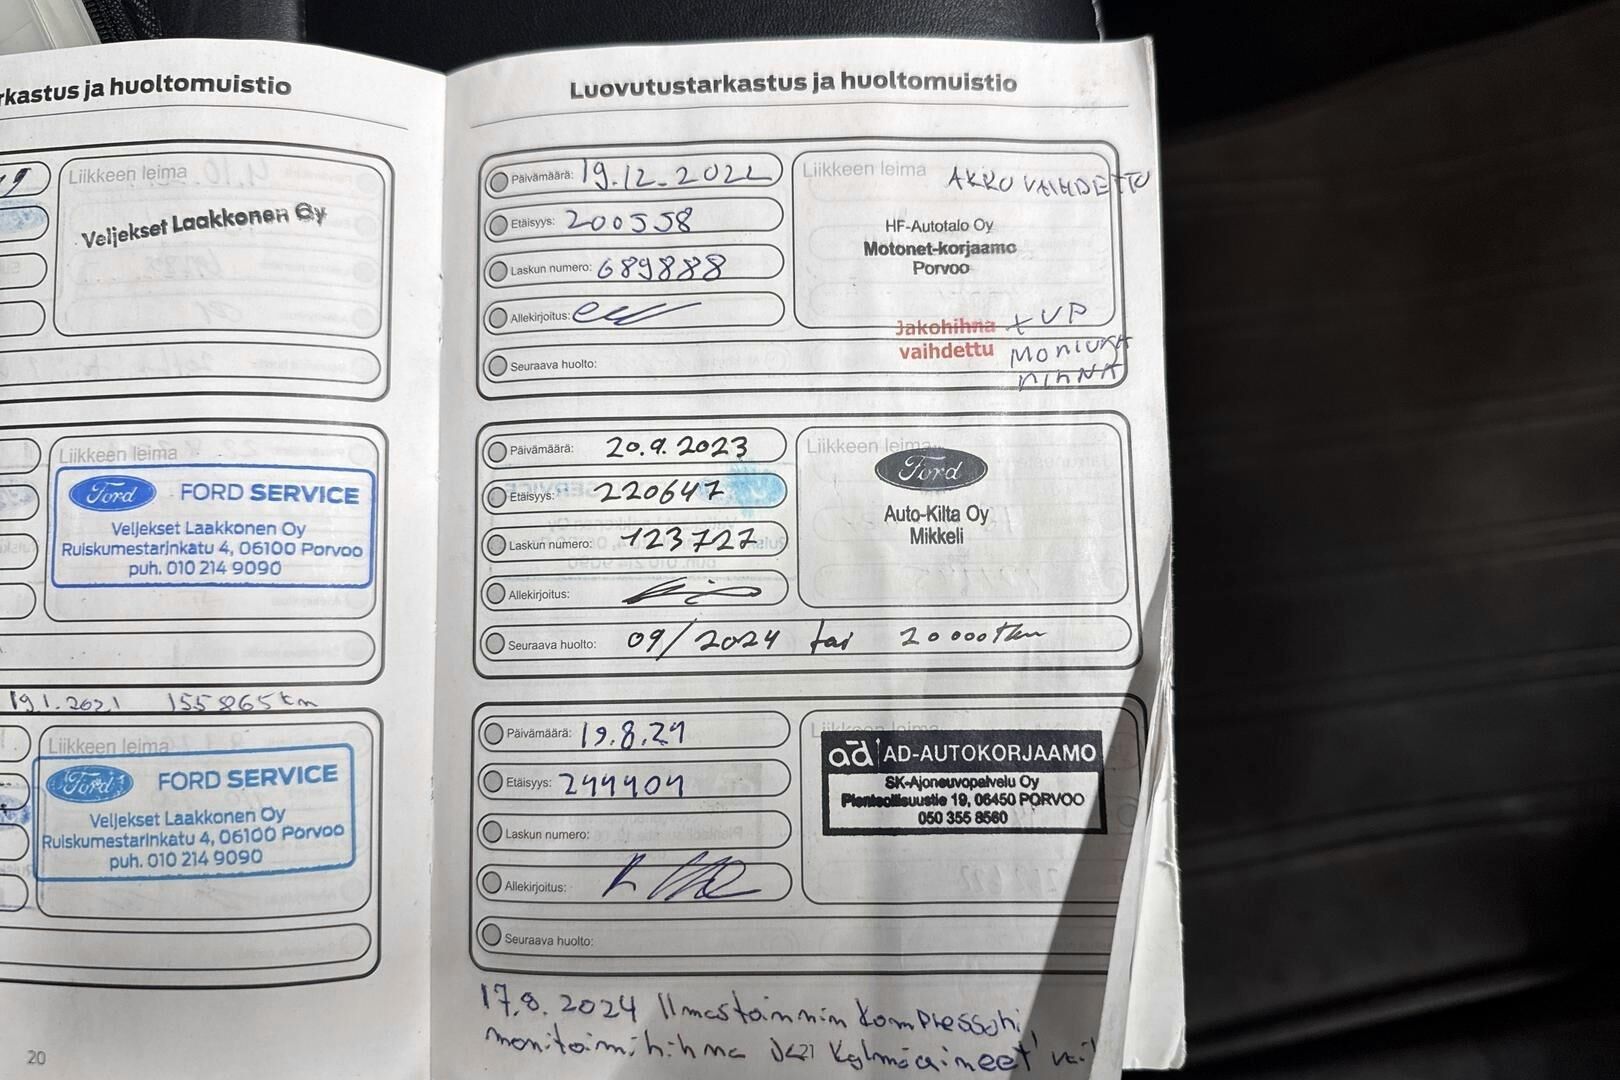 rkastus ja huoltomuistio
Liikkeen leima
Veljekset Laakkonen Oy
Liikkeen leima
Ford FORD SERVICE
Veljekset Laakkonen Oy
Ruiskumestarinkatu 4, 06100 Porvoo
puh. 010 214 9090
19.1.2021 155865 km
Liikkeen leima
Ford FORD SERVICE
Veljekset Laakkonen Oy
Ruiskumestarinkatu 4, 06100 Porvoo
puh. 010 214 9090
20
Luovutustarkastus ja huoltomuistio
Päivämäärä: 19.12.2022
Etäisyys: 200558
Laskun numero: 689888
Allekirjoitus:
Seuraava huolto:
Liikkeen leima
AKKU VAIHDETTU
HF-Autotalo Oy
Motonet-korjaamo
Porvoo
Jakohihna
vaihdettu
+ VP
MONIURA
HIHNA
Päivämäärä: 20.9.2023
Etäisyys: 220647
Laskun numero: 123727
Allekirjoitus:
Seuraava huolto: 09/2024 tai 20000 km
Liikkeen leima
Ford
Auto-Kilta Oy
Mikkeli
Päivämäärä: 19.8.24
Etäisyys: 244404
Laskun numero:
Allekirjoitus:
Seuraava huolto:
Liikkeen leima
ad AD-AUTOKORJAAMO
SK-Ajoneuvopalvelu Oy
Pienteollisuustie 19, 06450 PORVOO
050 355 8560
17.8.2024 Ilmastoinnin kompressori
monitoimihihna ja kylmäaineet